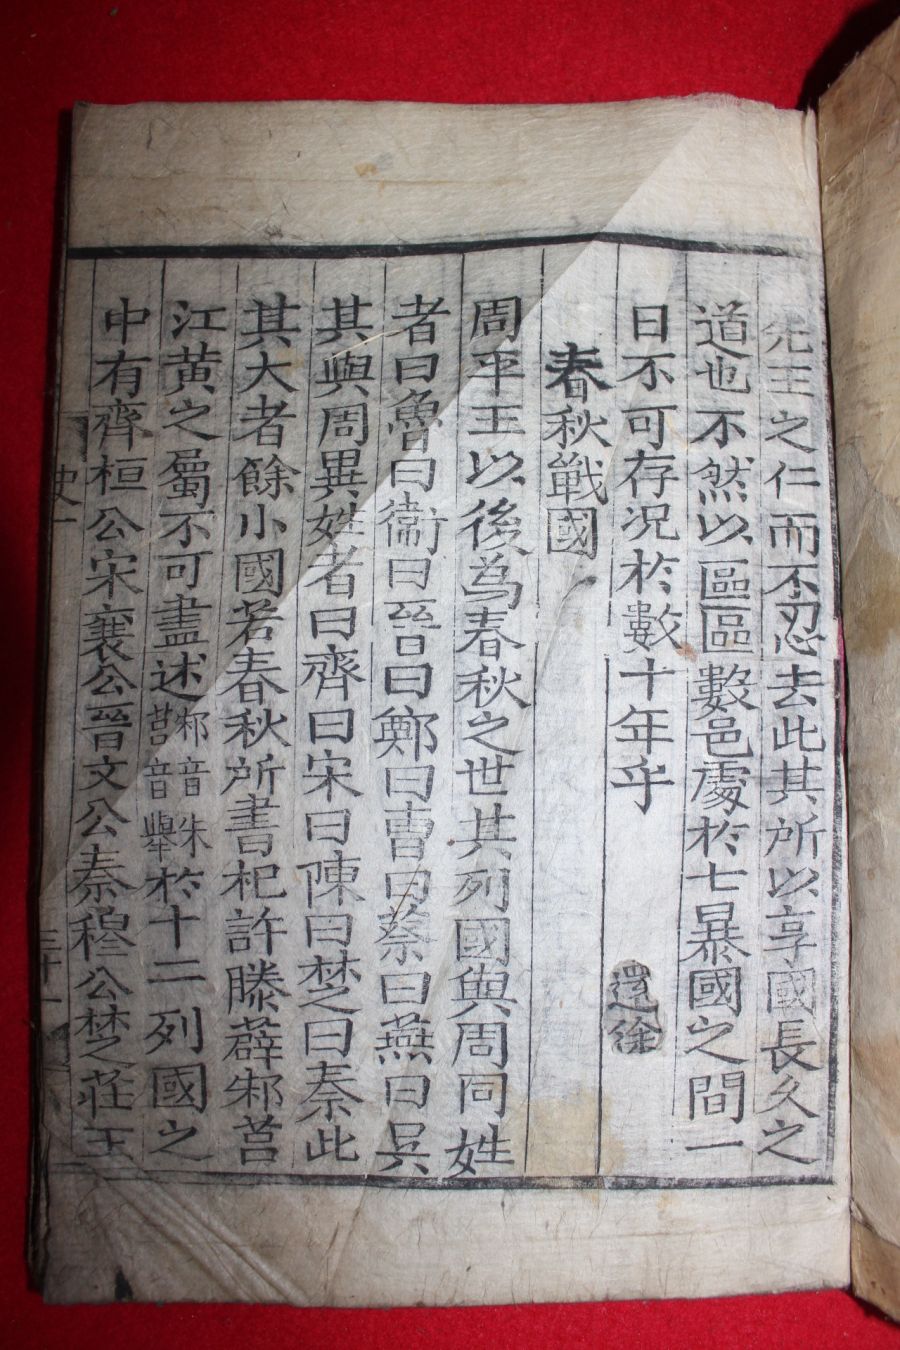 先王之仁而不忍去此其所以享國長久之
道也不然以區區數邑處於七暴國之間一
日不可存况於數十年乎
還徐
春秋戰國
周平王以後為春秋之世其列國與周同姓
者曰魯曰衞曰晉曰鄭曰曹曰蔡曰燕曰吳
其與周異姓者曰齊曰宋曰陳曰楚曰秦此
其大者餘小國若春秋所書杞許滕薛邾莒
江黃之屬不可盡述邾音朱莒音擧於十二列國之
中有齊桓公宋襄公晉文公秦穆公楚莊王
史一
三十一